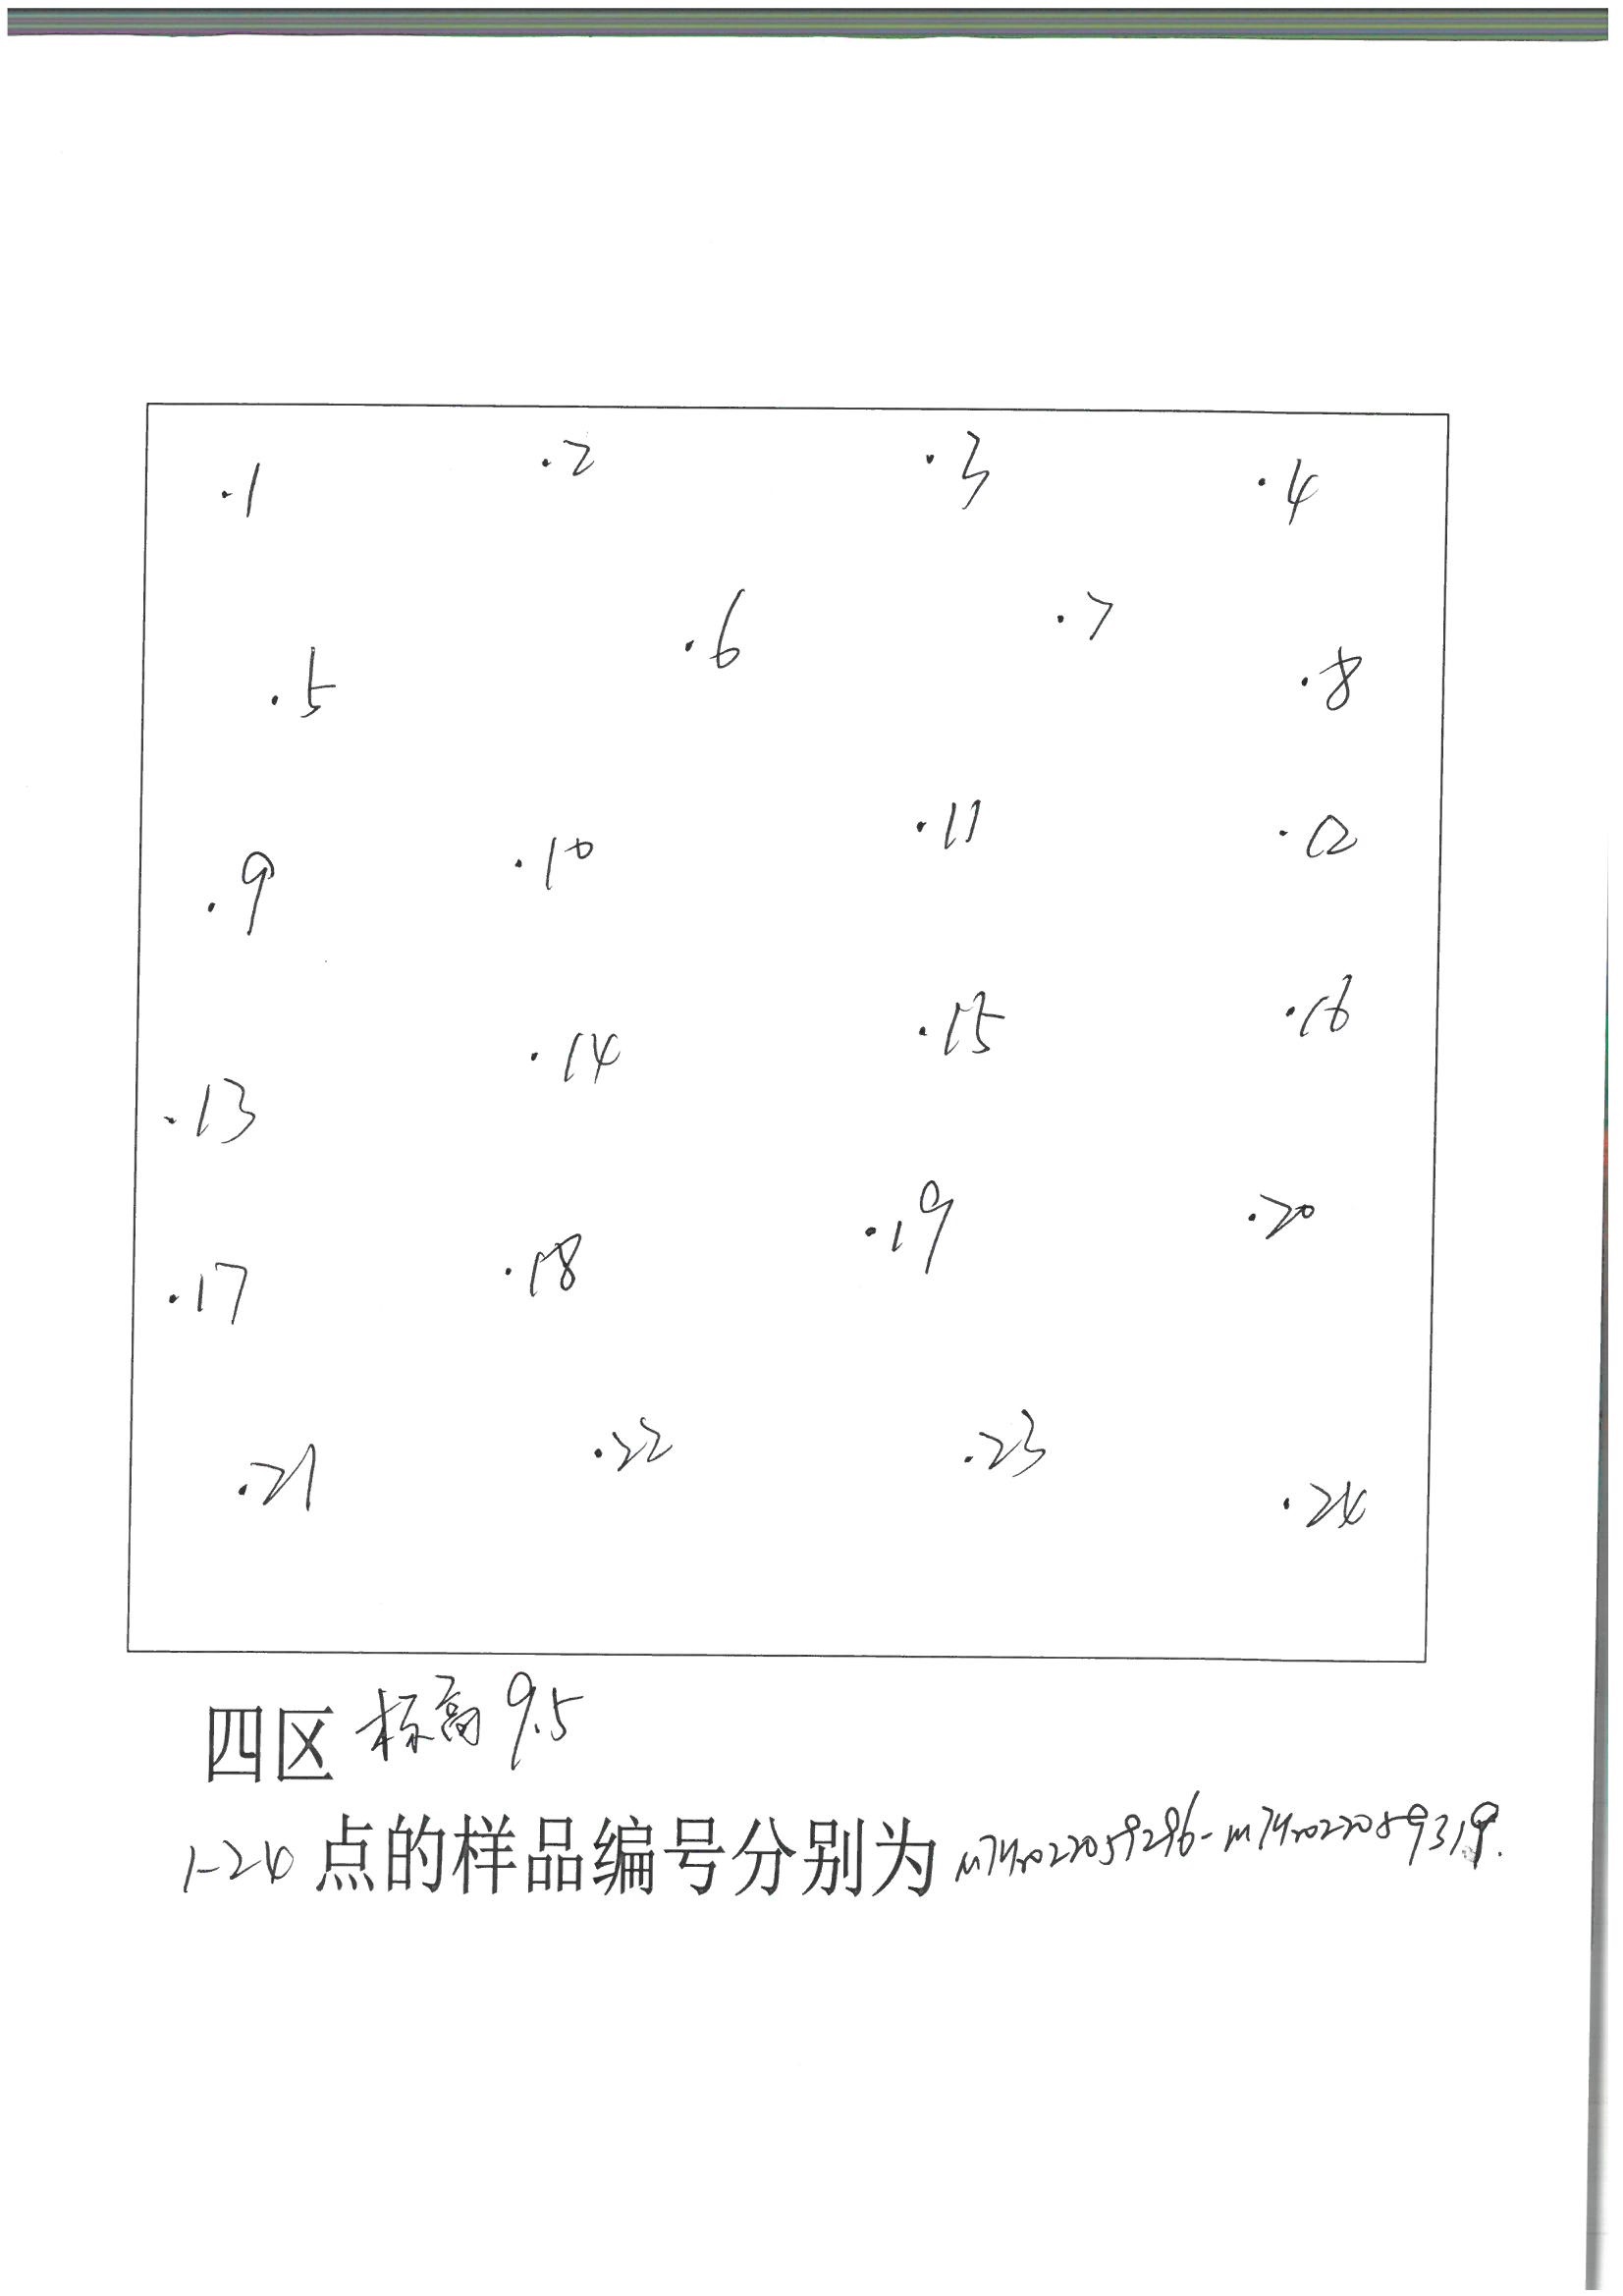 .1 .2 .3 .4
.5 .6 .7 .8
.9 .10 .11 .12
.13 .14 .15 .16
.17 .18 .19 .20
.21 .22 .23 .24
四区 标高 9.5
1-24 点的样品编号分别为